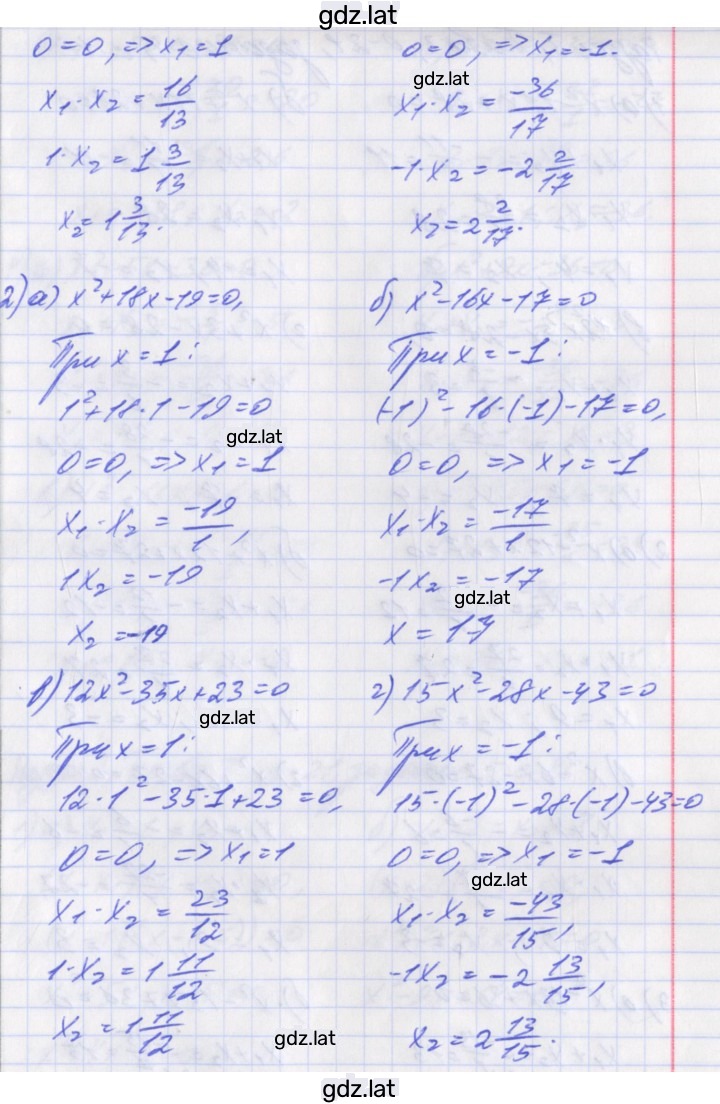 gdz.lat
0=0, => x₁=1
x₁·x₂ = 16/13
1·x₂ = 1 3/13
x₂ = 1 3/13.
0=0, => x₁=-1.
gdz.lat
x₁·x₂ = -36/17
-1·x₂ = -2 2/17
x₂ = 2 2/17.
2) а) x²+18x-19=0,
При x=1:
1²+18·1-19=0
gdz.lat
0=0, => x₁=1
x₁·x₂ = -19/1,
1x₂ = -19
x₂ = -19
б) x²-16x-17=0
При x=-1:
(-1)²-16·(-1)-17=0,
0=0, => x₁=-1
x₁·x₂ = -17/1
-1x₂ = -17
gdz.lat
x = 17
в) 12x²-35x+23=0
gdz.lat
При x=1:
12·1²-35·1+23=0,
0=0, => x₁=1
x₁·x₂ = 23/12
1·x₂ = 1 11/12
x₂ = 1 11/12
gdz.lat
г) 15x²-28x-43=0
При x=-1:
15·(-1)²-28·(-1)-43=0
0=0, => x₁=-1
gdz.lat
x₁·x₂ = -43/15,
-1x₂ = -2 13/15,
x₂ = 2 13/15.
gdz.lat